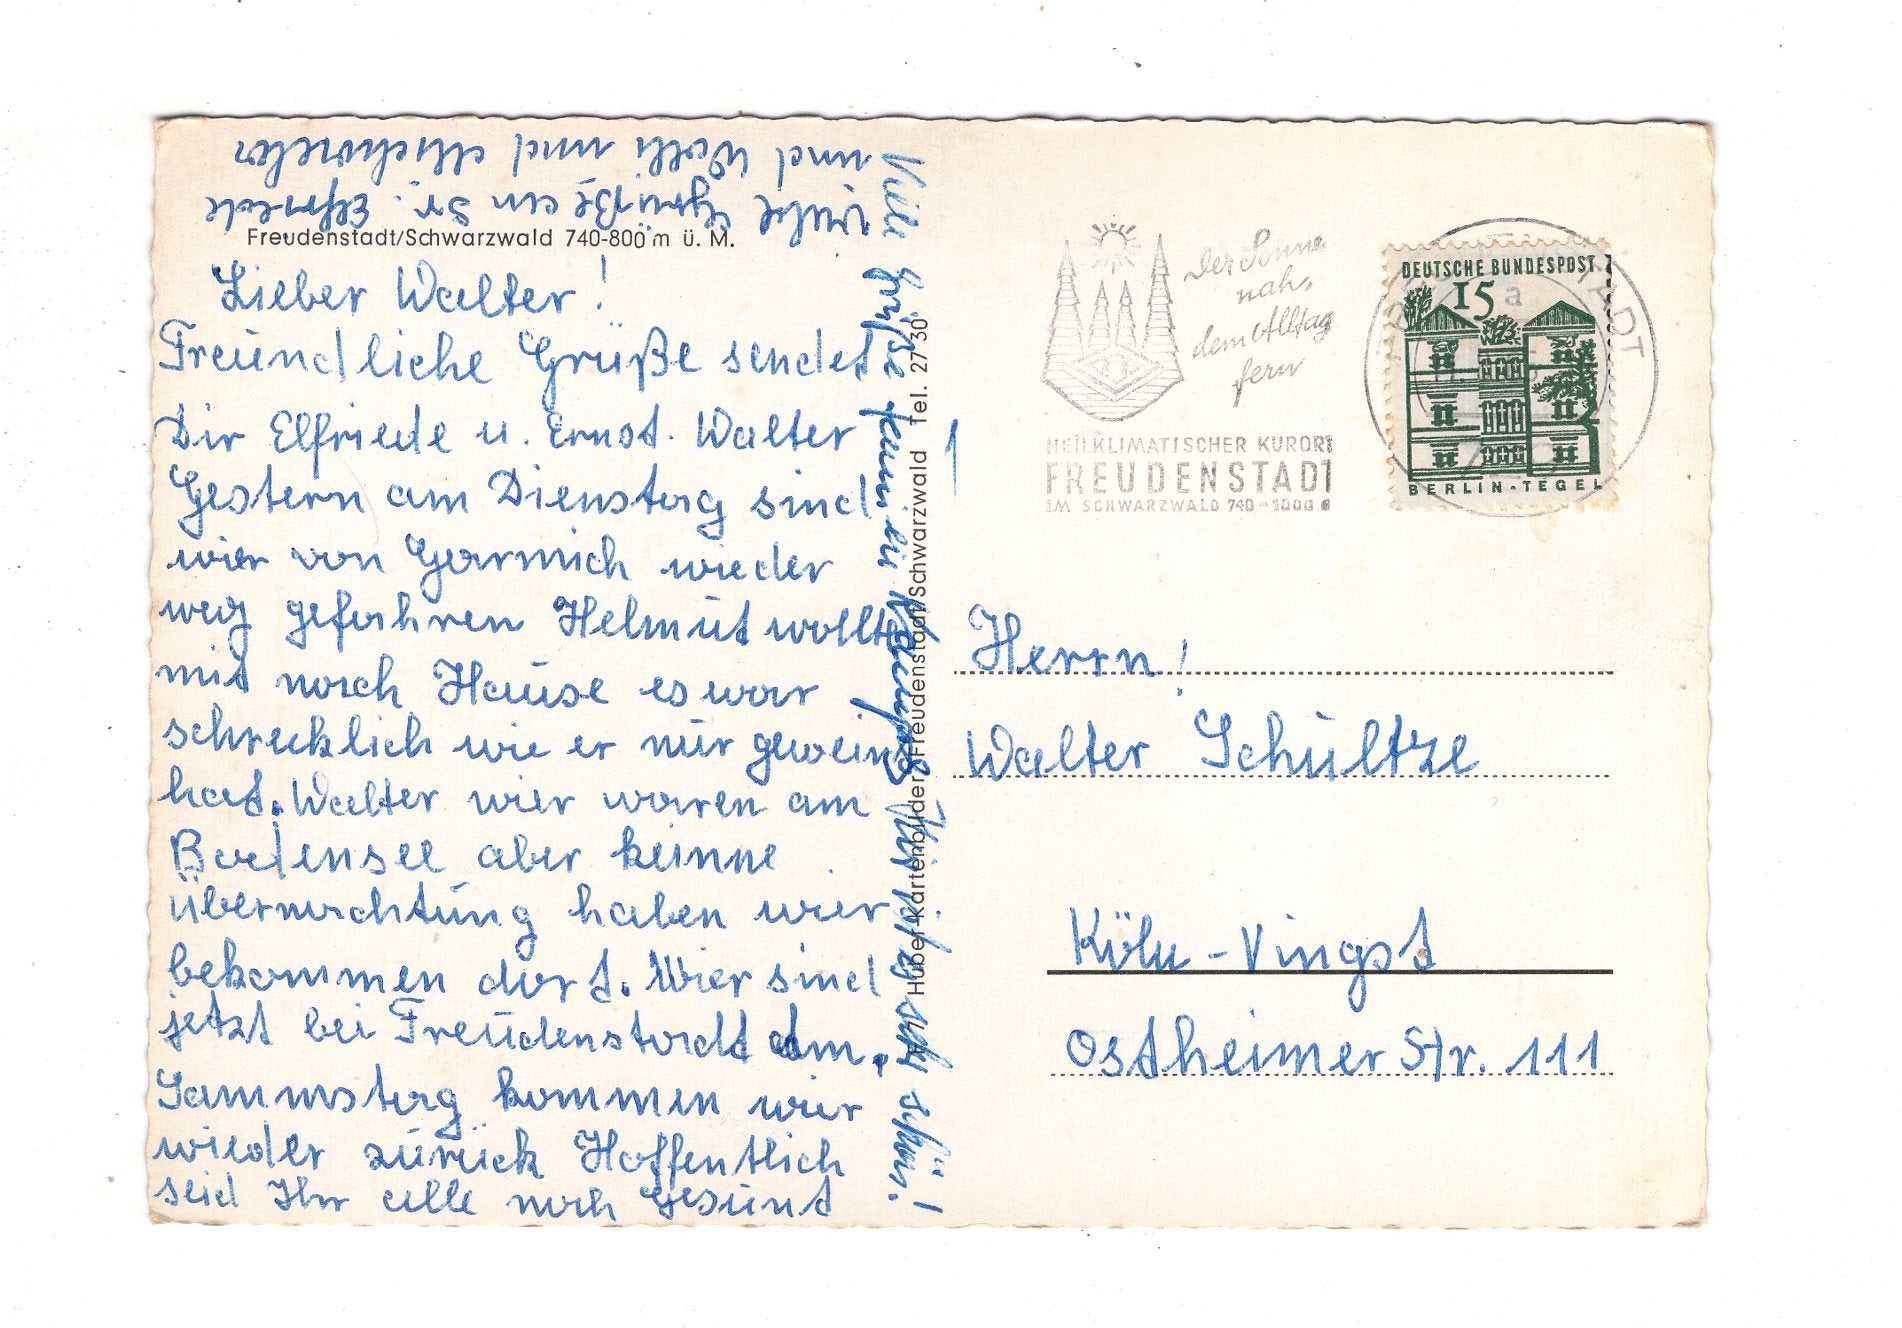 Freudenstadt/Schwarzwald 740-800 m ü. M.
Lieber Walter!
Freundliche Grüße sendet
Dir Elfriede u. Ernst. Walter
Gestern am Dienstag sind
wier von Garmich wieder
weg gefahren Helmut wollte
mit nach Hause es war
schrecklich wie er nur geweint
hat. Walter wier waren am
Bodensee aber keinne
übernachtung haben wier
bekommen dort. Wier sind
jetzt bei Freudenstadt am
Sammstag kommen wier
wieder zurück Hoffentlich
seid Ihr alle noch Gesunt
viele Grüße an Fr. Elfriede
und Walli und
Viele Grüße
sehr schön!
Huber-Kartenbilder/Freudenstadt/Schwarzwald Tel. 27 30
Der Sonne
nah,
dem Alltag
fern
HEILKLIMATISCHER KURORT
FREUDENSTADT
IM SCHWARZWALD 740-1000 m
DEUTSCHE BUNDESPOST
15
a
BERLIN-TEGEL
Herrn!
Walter Schultze
Köln-Vingst
Ostheimer Str. 111